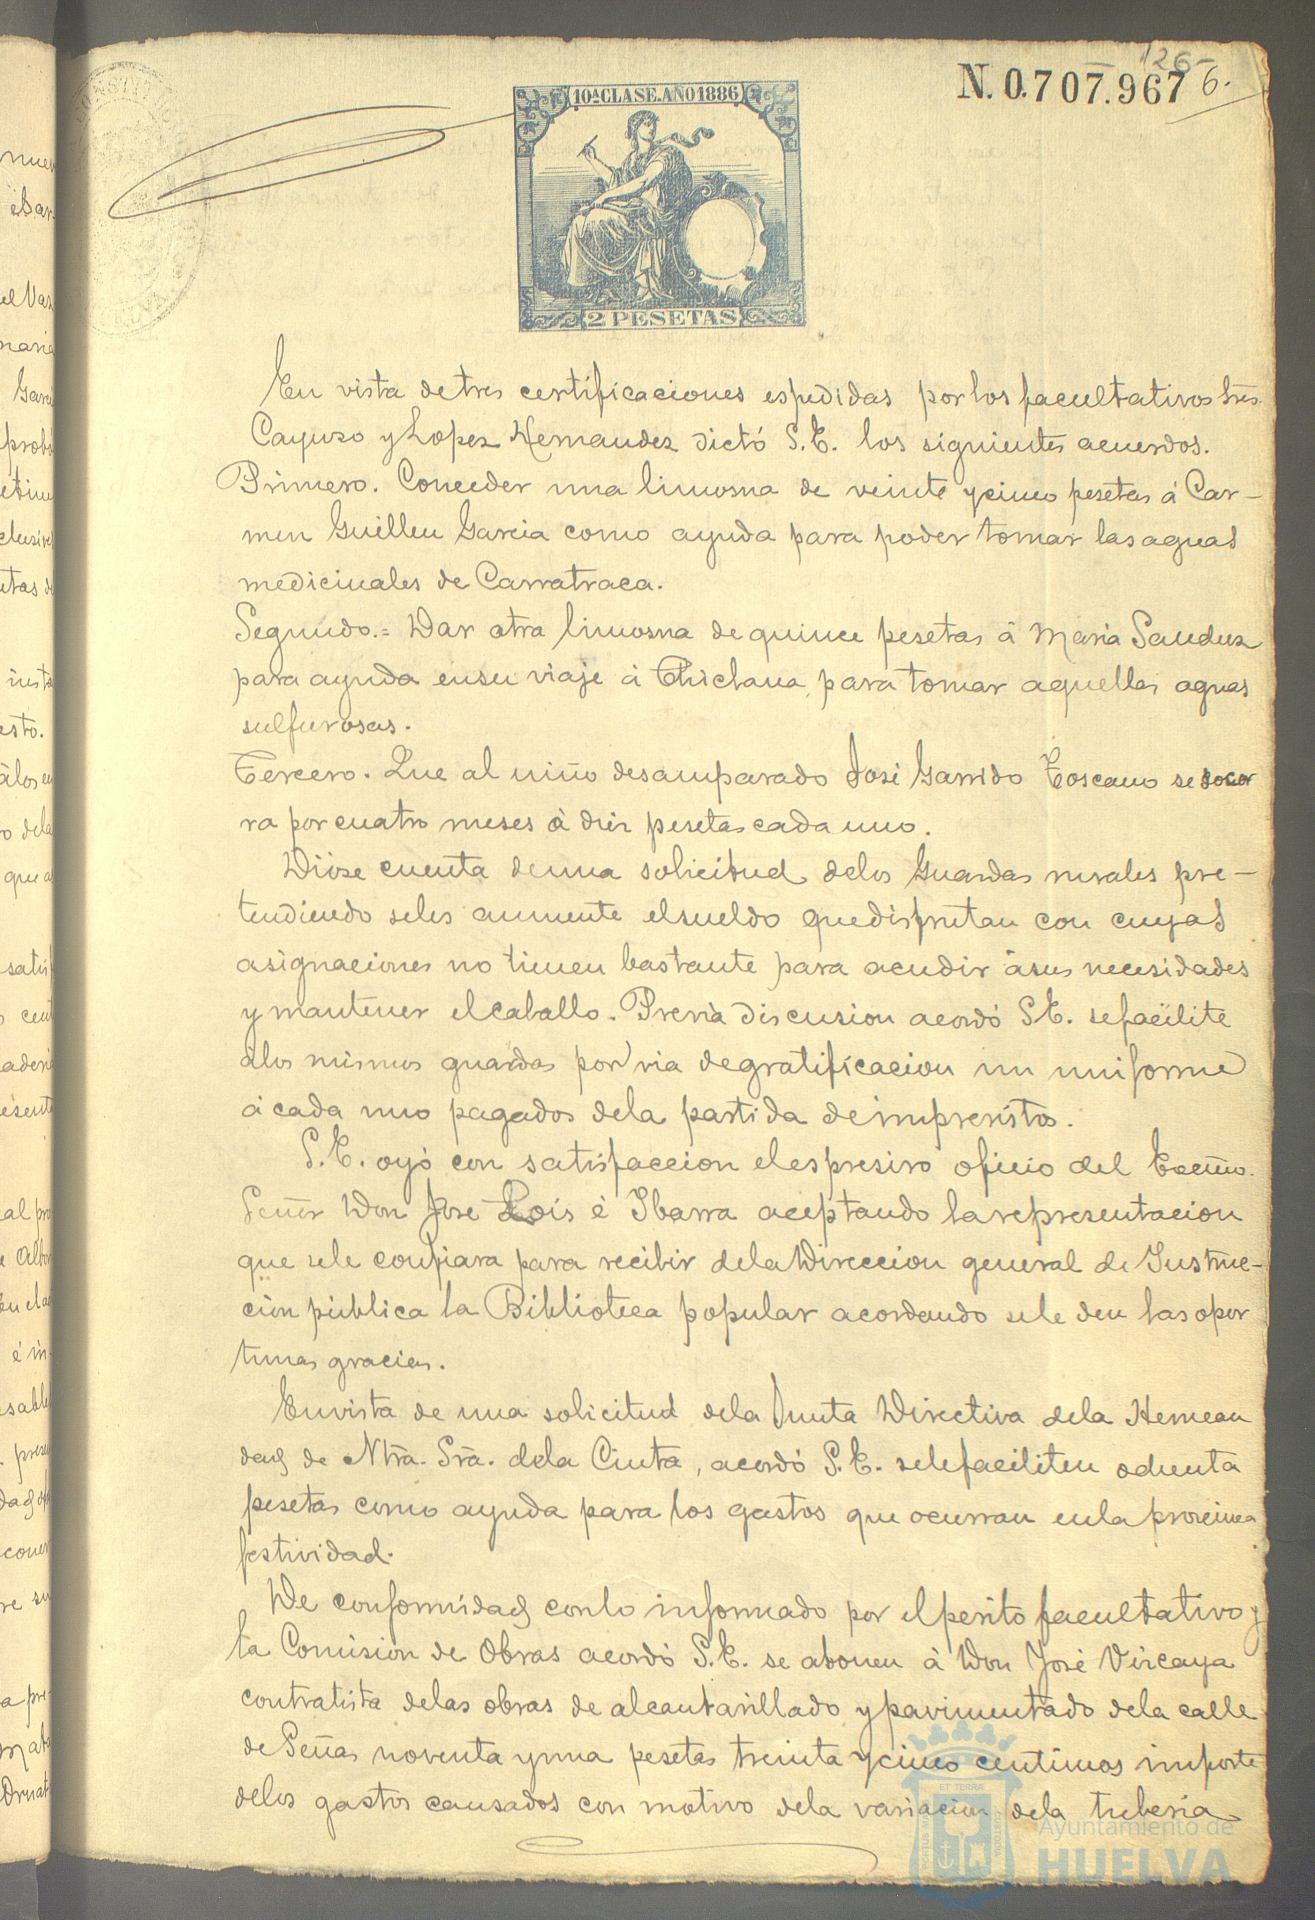 126
N. 0.707.967 6.
10ª CLASE. AÑO 1886
2 PESETAS
En vista de tres certificaciones espedidas por los facultativos Sres.
Cayuso y Lopez Hernandez dictó S.E. los siguientes acuerdos.
Primero. Conceder una limosna de veinte y cinco pesetas á Car-
men Guillen Garcia como ayuda para poder tomar las aguas
medicinales de Carratraca.
Segundo.= Dar otra limosna de quince pesetas á Maria
para ayuda en su viaje á Chiclana, para tomar aquellas aguas
sulfurosas.
Tercero. Que al niño desamparado José Garrido Toscano se socor
ra por cuatro meses á diez pesetas cada uno.
Dióse cuenta de una solicitud de los Guardas rurales pre-
tendiendo se les aumente el sueldo que disfrutan con cuyas
asignaciones no tienen bastante para acudir á sus necesidades
y mantener el caballo. Previa discusion acordó S.E. se facilite
á los mismos guardas por via de gratificacion un uniforme
á cada uno pagados de la partida de imprevistos.
S.E. oyó con satisfaccion el espresivo oficio del Excmo.
Señor Don José Lois é Ibarra aceptando la representacion
que se le confiara para recibir de la Direccion general de Instruc-
cion pública la Biblioteca popular acordando se le den las opor
tunas gracias.
En vista de una solicitud de la Junta Directiva de la Herman
dad de Ntra. Sra. de la Cinta, acordó S.E. se le faciliten ochenta
pesetas como ayuda para los gastos que ocurran en la procsima
festividad.
De conformidad con lo informado por el perito facultativo y
la Comision de Obras acordó S.E. se abonen á Don José Vizcaya
contratista de las obras de alcantarillado y pavimentado de la calle
de Peñas noventa y una pesetas treinta y cinco centimos importe
de los gastos causados con motivo de la variacion de la tuberia
Ayuntamiento de
HUELVA